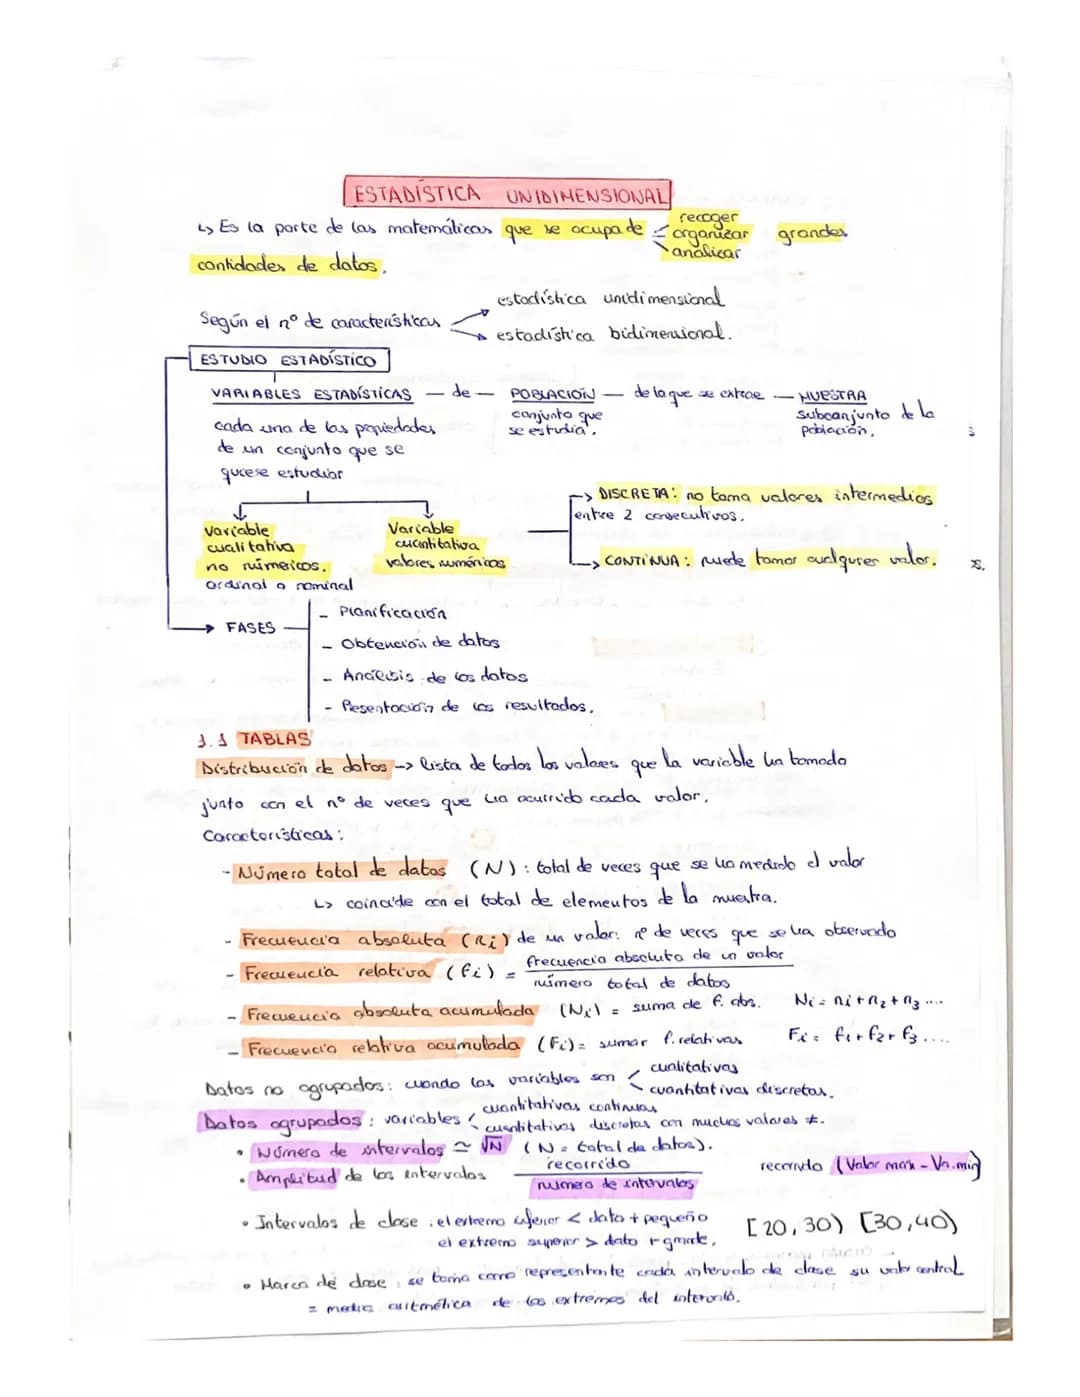 ESTADÍSTICA UNIDIMENSIONAL
↳ Es la parte de las matemáticas que se ocupa de recoger organizar analizar grandes
cantidades de datos.
Según el nº de características
estadística unidimensional
estadística bidimensional.
ESTUDIO ESTADÍSTICO
VARIABLES ESTADÍSTICAS — de — POBLACIÓN — de la que se extrae — MUESTRA
cada una de las propiedades
de un conjunto que se
quiere estudiar
conjunto que
se estudia.
subconjunto de la
población.
Variable
cualitativa
no númericos.
ordinal o nominal
Variable
cuantitativa
valores numéricos
→ DISCRETA: no toma valores intermedios
entre 2 consecutivos.
→ CONTÍNUA: puede tomar cualquier valor.
→ FASES
- Planificación
- Obtención de datos
- Análisis de los datos
- Presentación de los resultados.
1.1 TABLAS
Distribución de datos → lista de todos los valores que la variable ha tomado
junto con el nº de veces que ha ocurrido cada valor.
Características:
- Número total de datos (N): total de veces que se ha medido el valor
↳ coincide con el total de elementos de la muestra.
- Frecuencia absoluta (ni) de un valor: nº de veces que se ha observado
- Frecuencia relativa (fi) = frecuencia absoluta de un valor
número total de datos
- Frecuencia absoluta acumulada (Ni) = suma de f. abs. Ni = ni + n2 + n3 ....
- Frecuencia relativa acumulada (Fi) = sumar f. relativas Fi = f1 + f2 + f3 ....
Datos no agrupados: cuando las variables son cualitativas
cuantitativas discretas.
Datos agrupados: variables cuantitativas continuas
cuantitativas discretas con muchos valores ≠.
• Número de intervalos ≃ √N (N = total de datos).
• Amplitud de los intervalos recorrido
número de intervalos
recorrido (Valor max - Va. min)
• Intervalos de clase: el extremo inferior < dato + pequeño
el extremo superior > dato + grande.
[20, 30) [30, 40)
• Marca de clase: se toma como representante cada intervalo de clase su valor central
= media aritmética de los extremos del intervalo.